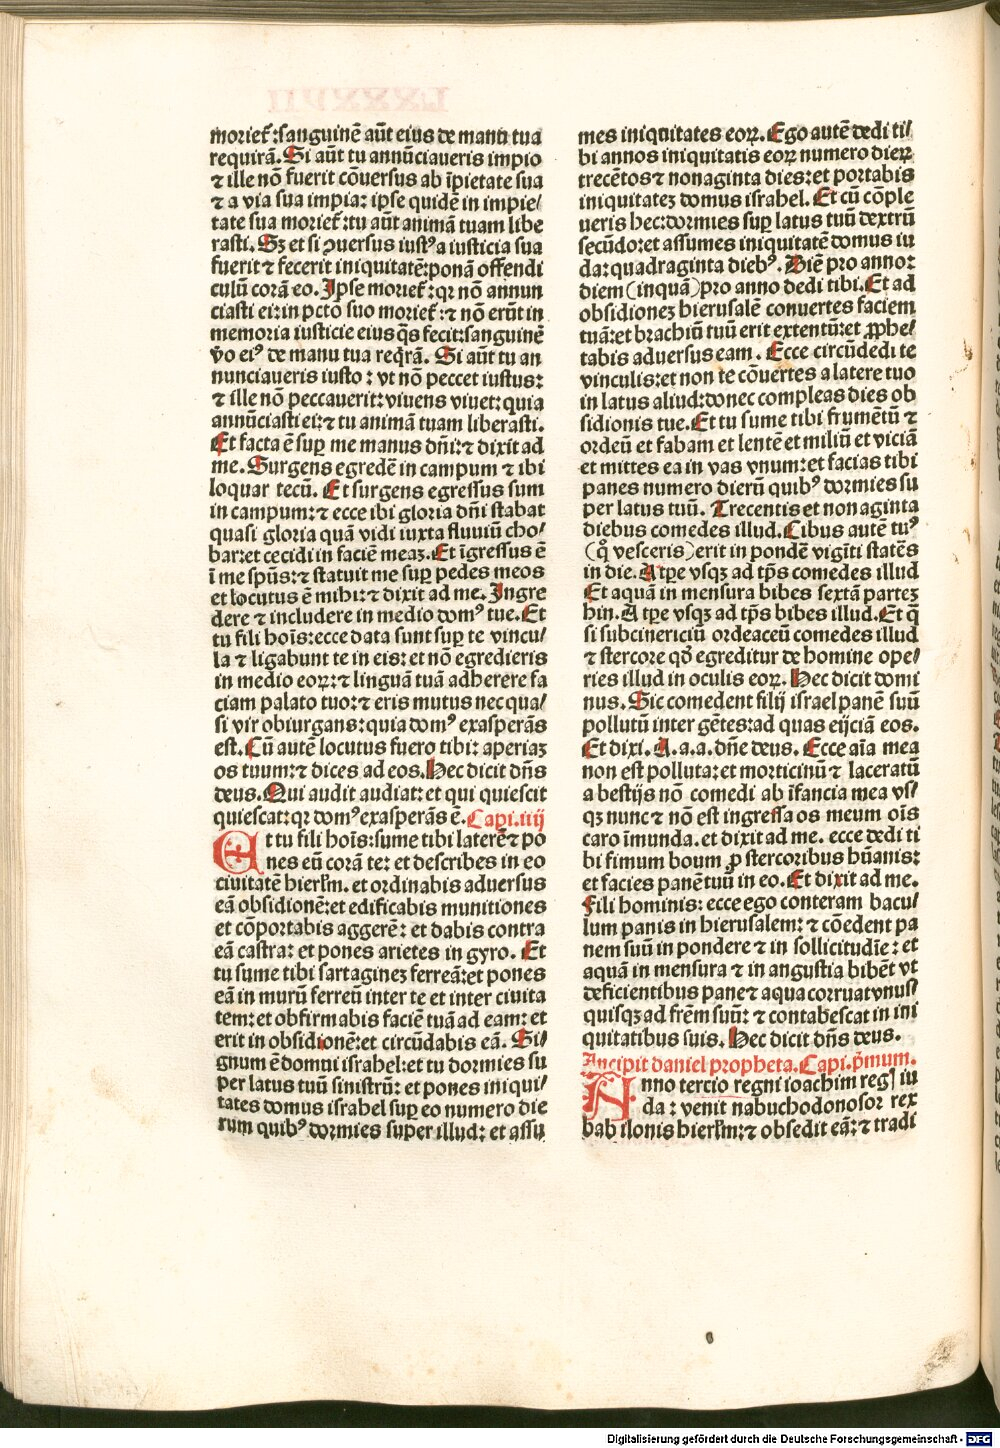 morieť:sanguinē aūt eius de manu tua
requirā. Si aūt tu annūciaueris impio
⁊ ille nō fuerit cōuersus ab īpietate sua
⁊ a via sua impia: ipse quidē in impie/
tate sua morieť:tu aūt animā tuam libe
rasti. Sꝫ et si ꝯuersus iustꝰ a iusticia sua
fuerit ⁊ fecerit iniquitatē:ponā offendi
culū corā eo. Ipse morieť:qꝛ nō annun
ciasti ei:in pctō suo morieť:⁊ nō erūt in
memoria iusticie eius q̄s fecit:sanguinē
v̄o eiꝰ de manu tua reqͥrā. Si aūt tu an
nunciaueris iusto: vt nō peccet iustus:
⁊ ille nō peccauerit:viuens viuet:quia
annūciasti ei:⁊ tu animā tuam liberasti.
Et facta ē suꝑ me manus dn̄i:⁊ dixit ad
me. Surgens egredē in campum ⁊ ibi
loquar tecū. Et surgens egressus sum
in campum:⁊ ecce ibi gloria dn̄i stabat
quasi gloria quā vidi iuxta fluuiū cho/
bar:et cecidi in faciē meaꝫ. Et īgressus ē
ī me spūs:⁊ statuit me suꝑ pedes meos
et locutus ē mihi:⁊ dixit ad me. Ingre
dere ⁊ includere in medio domꝰ tue. Et
tu fili hoīs:ecce data sunt suꝑ te vincu/
la ⁊ ligabunt te in eis:et nō egredieris
in medio eoꝝ:⁊ linguā tuā adherere fa
ciam palato tuo:⁊ eris mutus nec qua/
si vir obiurgans:quia domꝰ exasperās
est. Cū autē locutus fuero tibi:aperiaꝫ
os tuum:⁊ dices ad eos. Hec dicit dn̄s
deus. Qui audit audiat:et qui quiescit
quiescat:qꝛ domꝰ exasperās ē. Capi.iiij
Et tu fili hoīs:sume tibi laterē ⁊ po
nes eū corā te: et describes in eo
ciuitatē hierłm. et ordinabis aduersus
eā obsidionē:et edificabis munitiones
et cōportabis aggerē: et dabis contra
eā castra: et pones arietes in gyro. Et
tu sume tibi sartagineꝫ ferreā:et pones
eā in murū ferreū inter te et inter ciuita
tem:et obfirmabis faciē tuā ad eam: et
erit in obsidionē:et circūdabis eā. Si/
gnum ē domui israhel:et tu dormies su
per latus tuū sinistrū: et pones iniqui/
tates domus israhel suꝑ eo numero die
rum quibꝰ dormies super illud: et assu
mes iniquitates eoꝝ. Ego autē dedi ti/
bi annos iniquitatis eoꝝ numero dieꝝ
trecētos ⁊ nonaginta dies:et portabis
iniquitateꝫ domus israhel. Et cū cōple
ueris hec:dormies suꝑ latus tuū dextrū
secūdo:et assumes iniquitatē domus iu
da:quadraginta diebꝰ. Diē pro anno:
diem (inquā) pro anno dedi tibi. Et ad
obsidioneꝫ hierusalē conuertes faciem
tuā:et brachiū tuū erit extentū:et ꝓphe/
tabis aduersus eam. Ecce circūdedi te
vinculis:et non te cōuertes a latere tuo
in latus aliud:donec compleas dies ob
sidionis tue. Et tu sume tibi frumētū ⁊
ordeū et fabam et lentē et miliū et viciā
et mittes ea in vas vnum:et facias tibi
panes numero dierū quibꝰ dormies su
per latus tuū. Trecentis et nonaginta
diebus comedes illud. Cibus autē tuꝰ
(qͦ vesceris) erit in pondē vigīti statēs
in die. A tꝑe vsqꝫ ad tp̄s comedes illud
Et aquā in mensura bibes sextā parteꝫ
hin. A tꝑe vsqꝫ ad tp̄s bibes illud. Et q̄
si subcinericiū ordeaceū comedes illud
⁊ stercore qd̄ egreditur de homine ope/
ries illud in oculis eoꝝ. Hec dicit domi
nus. Sic comedent filij israel panē suū
pollutū inter gētes:ad quas eijciā eos.
Et dixi. A.a.a.dn̄e deus. Ecce aīa mea
non est polluta:et morticinū ⁊ laceratū
a bestijs nō comedi ab īfancia mea vs/
qꝫ nunc ⁊ nō est ingressa os meum oīs
caro īmunda. et dixit ad me. ecce dedi ti
bi fimum boum ꝓ stercoribus hūanis:
et facies panē tuū in eo. Et dixit ad me.
Fili hominis: ecce ego conteram bacu/
lum panis in hierusalem: ⁊ cōedent pa
nem suū in pondere ⁊ in sollicitudīe: et
aquā in mensura ⁊ in angustia bibēt vt
deficientibus pane ⁊ aqua corruat vnus/
quisqꝫ ad frēm suū: ⁊ contabescat in ini
quitatibus suis. Hec dicit dn̄s deus.
Incipit daniel propheta. Capi.pͥmum.
Anno tercio regni ioachim regꝭ iu
da: venit nabuchodonosor rex
babilonis hierłm:⁊ obsedit eā:⁊ tradi
Digitalisierung gefördert durch die Deutsche Forschungsgemeinschaft - DFG